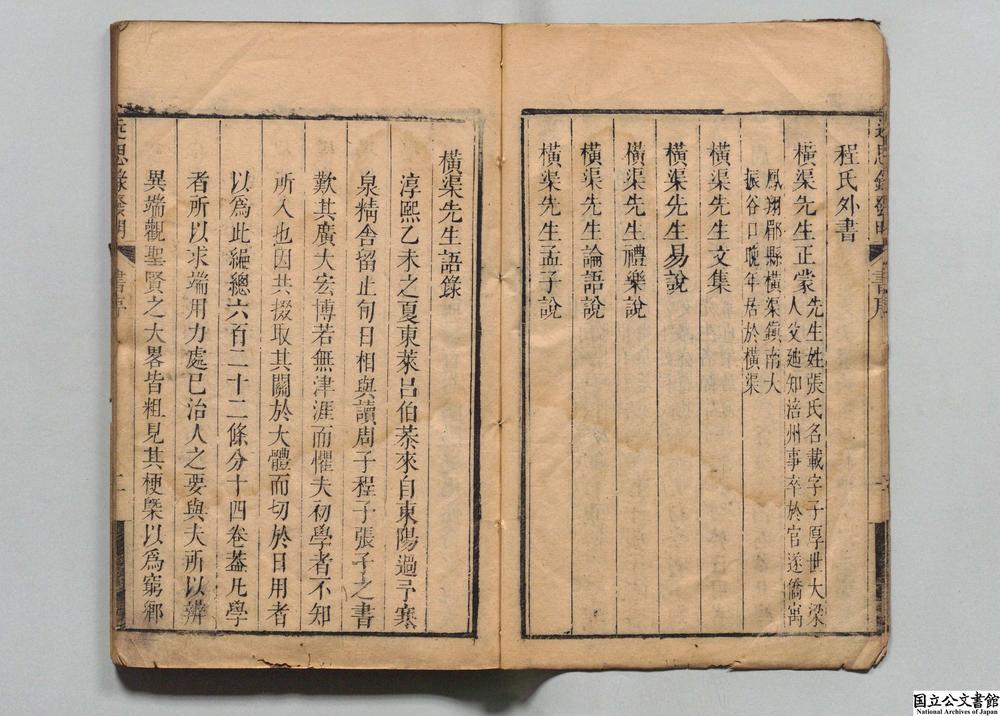 程氏外書
橫渠先生正蒙
先生姓張氏名載字子厚世大梁
人父廸知涪州事卒於官遂僑寓
鳳翔郿縣橫渠鎮南大
振谷口晚年居於橫渠
橫渠先生文集
橫渠先生易說
橫渠先生禮樂說
橫渠先生論語說
橫渠先生孟子說
橫渠先生語錄
淳熙乙未之夏東萊呂伯恭來自東陽過予寒
泉精舍留止旬日相與讀周子程子張子之書
歎其廣大宏博若無津涯而懼夫初學者不知
所入也因共掇取其關於大體而切於日用者
以爲此編總六百二十二條分十四卷葢凡學
者所以求端用力處已治人之要與夫所以辨
異端觀聖賢之大畧皆粗見其梗槩以爲窮鄉
近思錄發明
書序
二
国立公文書館
National Archives of Japan